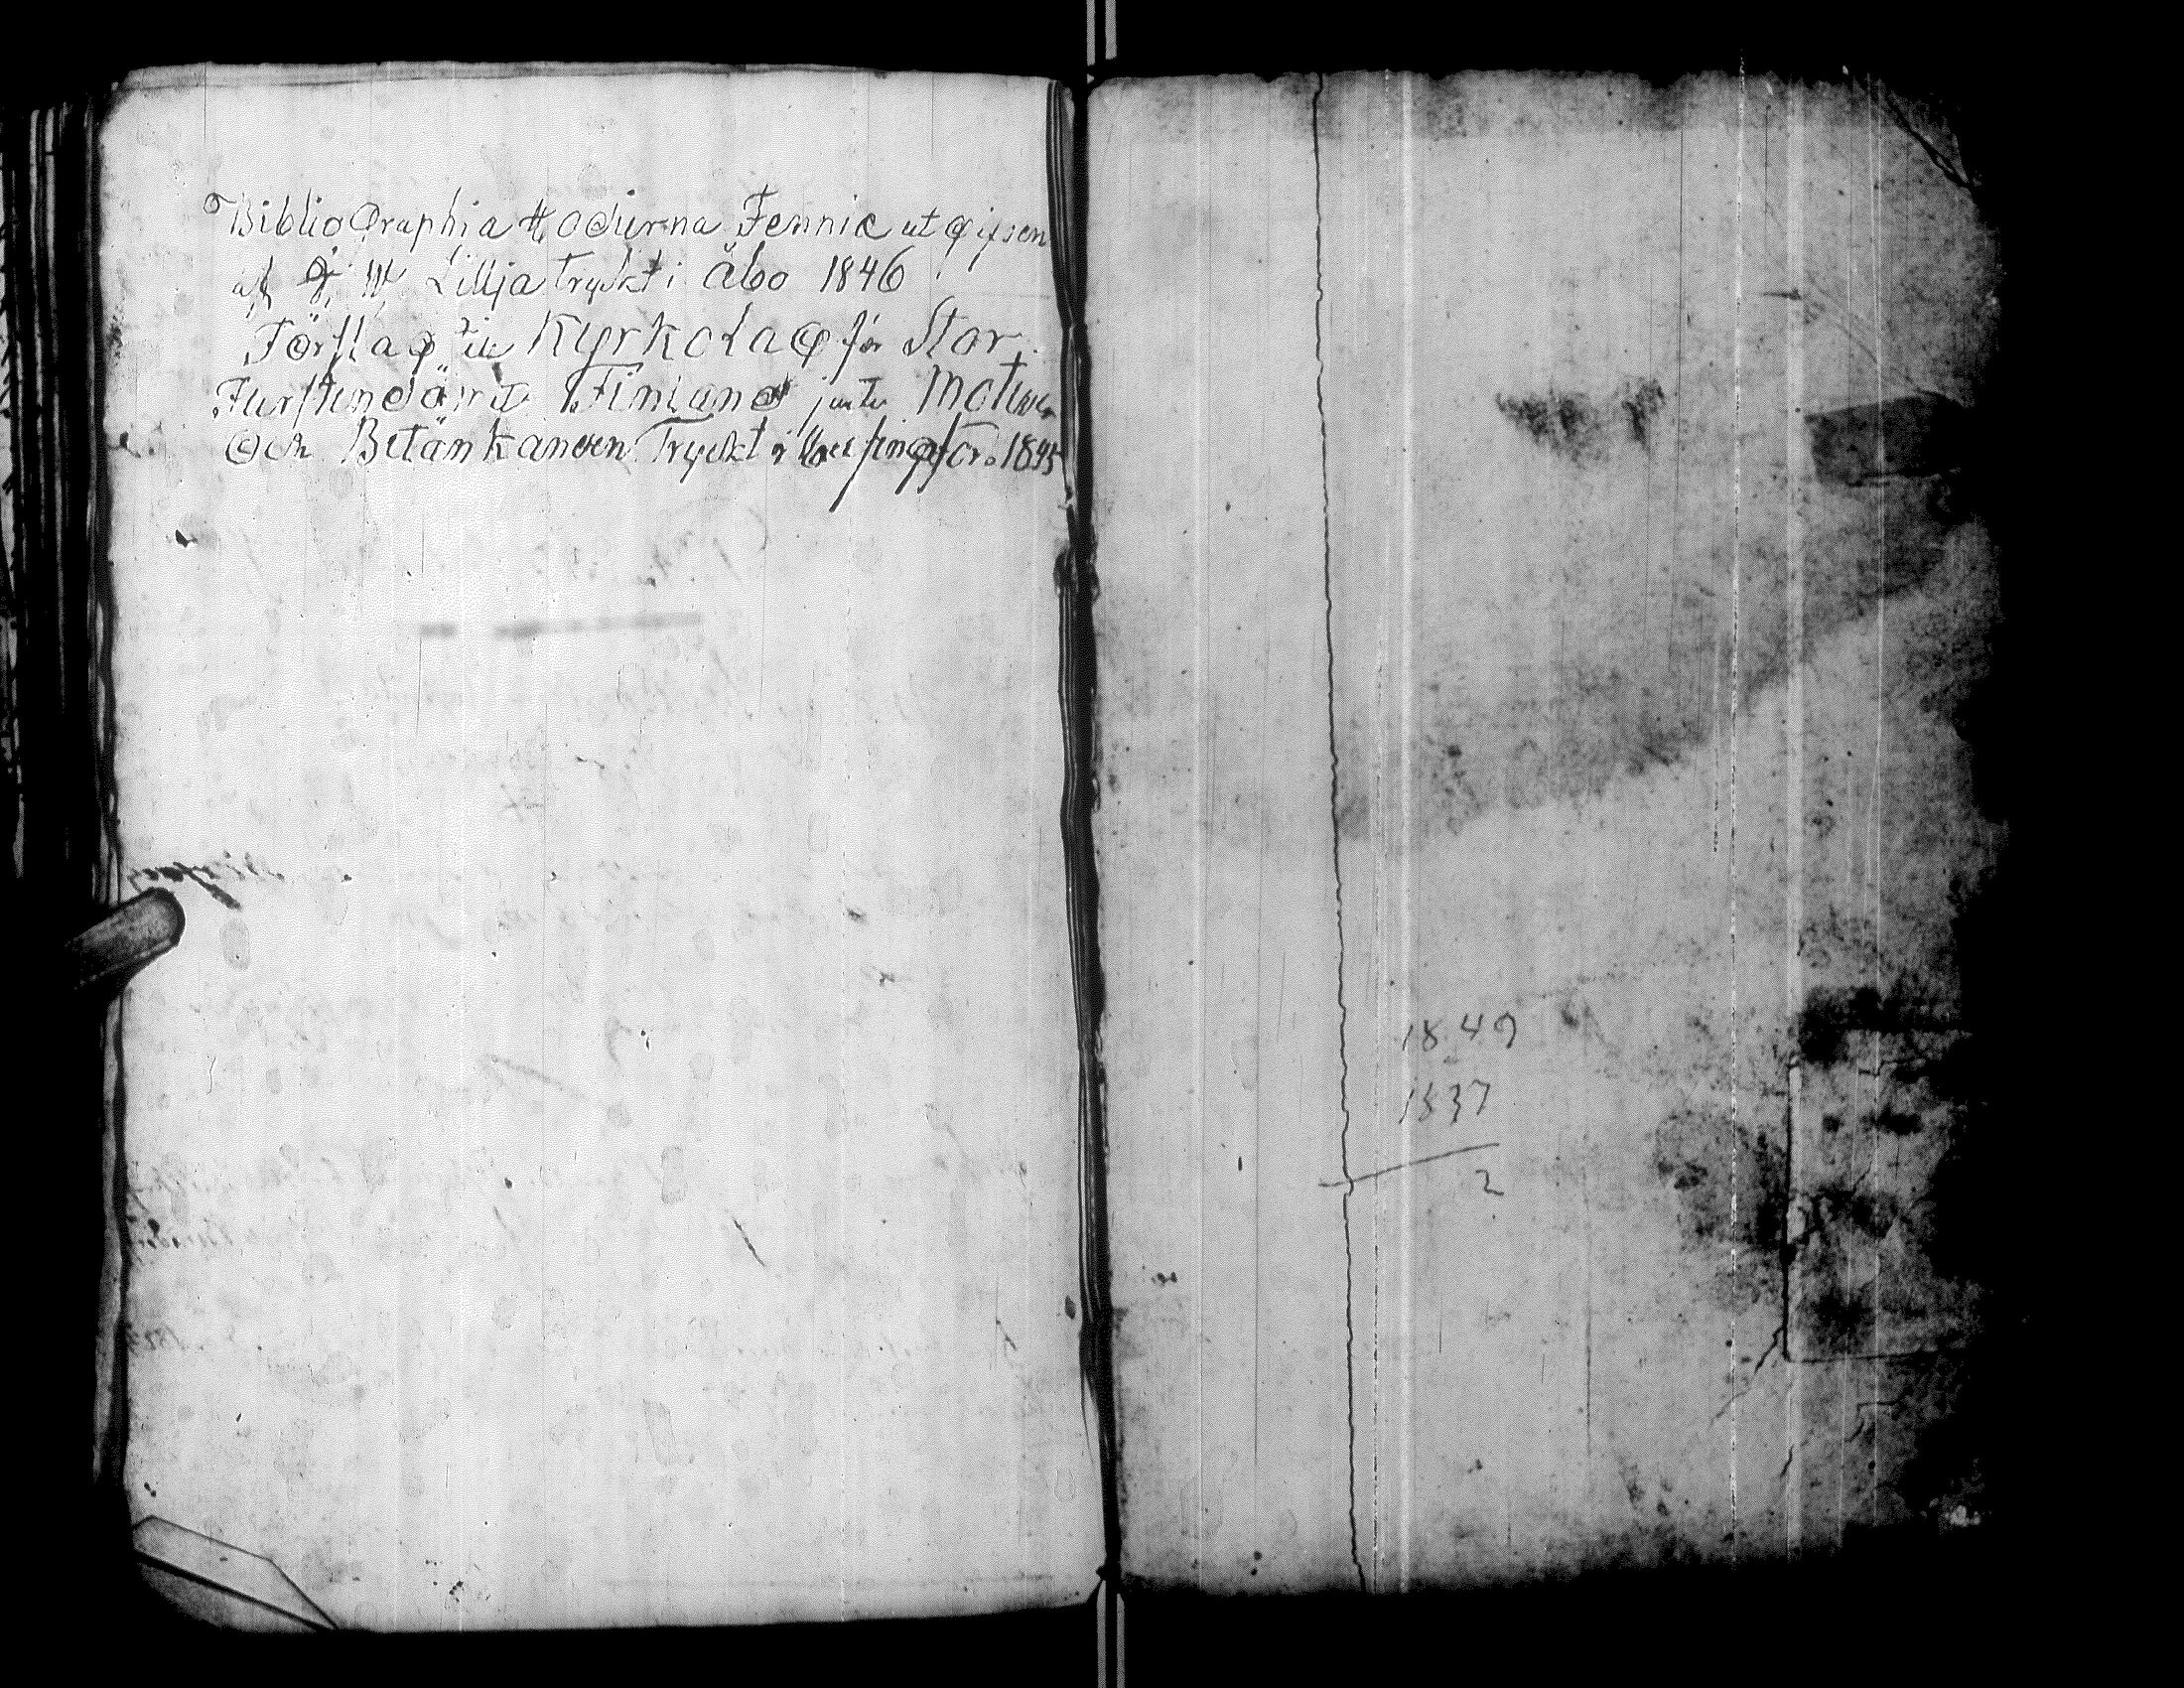 Biblio Graphia Hodierna Fennie ut gifven
af J. W. Lillja Tryckt i Åbo 1846
Förslag till Kyrko Lag för Stor
Furstendömet Finland jemte Motiver
Och Betänkanden Tryckt i Helsingfors 1845
1849
1837
2